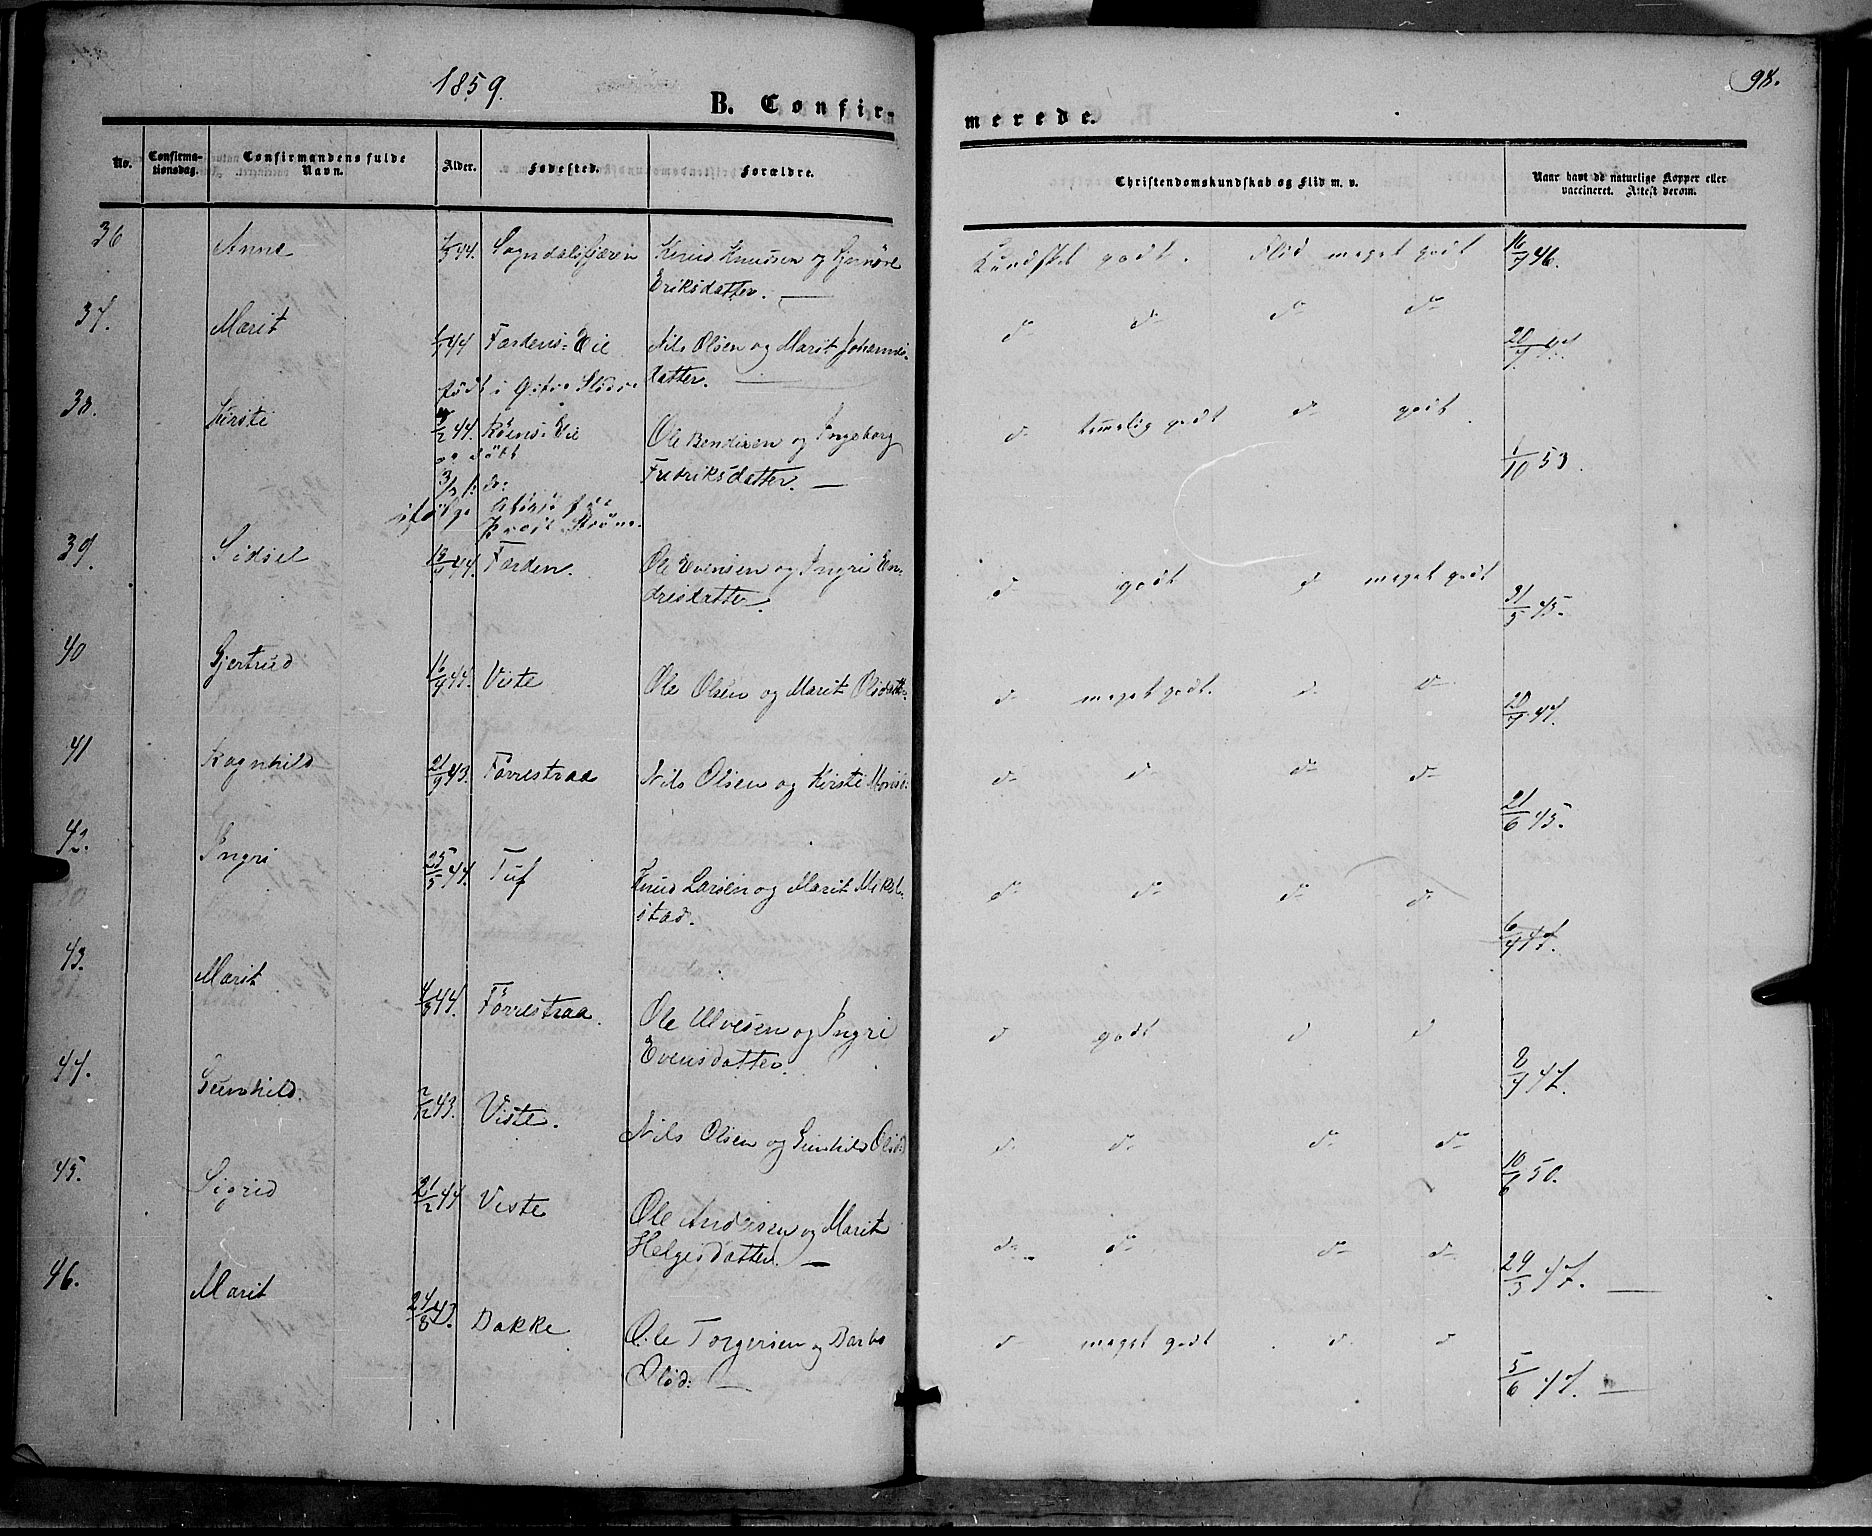 1859.
98.
B. Confir-
merede.
No.
Confirma-
tionsdag.
Confirmandens fulde
Navn.
Alder.
Fødested.
Forældre.
Christendomskundskab og Flid m. v.
Naar havt de naturlige Kopper eller
vaccineret. Attest derom.
36 Anne 44. Sogndalsfjæren Knud Knudsen og
Eriksdatter. Kundskab godt. Flid meget godt 16/7 46.
37. Marit 44 Færdens-Eie Nils Olsen og Marit Johannis-
datter. d d d d 47.
født i
38. Kirste 44. Røens-Eie Ole Bendixen og Ingeborg
Fredriksdatter. d temmelig godt d godt 1/10 53
og født
ifølge
39. Sidsel 44. Færden. Ole Evensen og Ingri En-
dresdatter. d godt d meget godt 31/5 45.
40 Gjertrud 16/9 44. Viste Ole Olsen og Marit Olsdatter d meget godt. d d 47.
41 Ragnhild 21/9 43. Førrestraa Nils Olsen og Kirste d d d d 21/6 45.
42. Ingri 25/5 44. Tuf Knud Larsen og Marit
stad. d d d d 47.
43. Marit 44. Førrestraa. Ole Ulvesen og Ingri
Evensdatter. d godt d d 47.
44. Gunhild. 2/12 43. Viste. Nils Olsen og Gunhild Olsd. d d d d 10/6 50.
45. Sigrid 21/2 44 Viste Ole Andersen og Marit
Helgesdatter. d d d d 29/3 47.
46. Marit 24/8 43. Bakke Ole Torgersen og Barbo
Olsd. d meget godt d d 5/6 47.